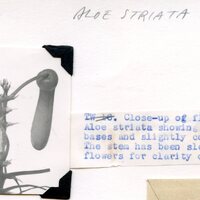 ALOE STRIATA
Close-up og fl
Aloe striata showing
bases and slightly c
The stem has been sl
flowers for clarity o